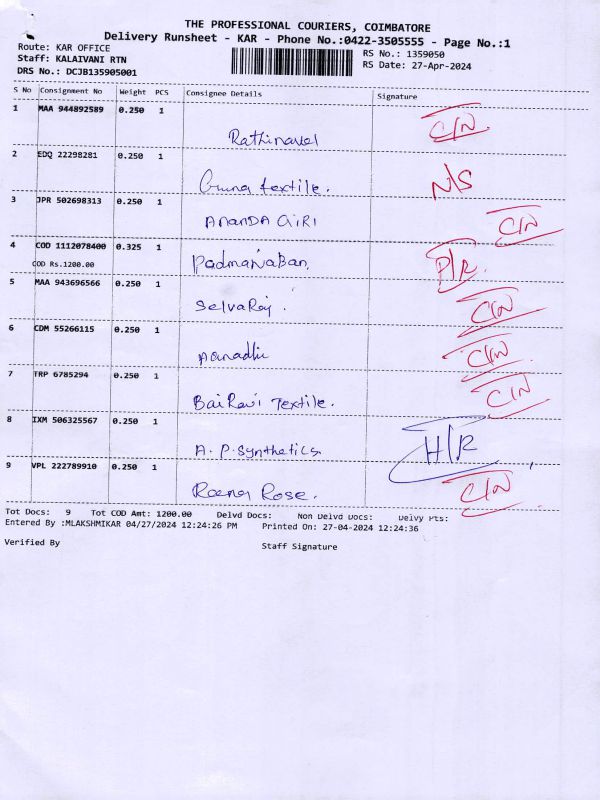 THE PROFESSIONAL COURIERS, COIMBATORE
Delivery Runsheet - KAR - Phone No.:0422-3505555 - Page No.:1
Route: KAR OFFICE RS No.: 1359050
Staff: KALAIVANI RTN RS Date: 27-Apr-2024
DRS No.: DCJB135905001
S No Consignment No Weight PCS Consignee Details Signature
1 MAA 944892589 0.250 1 Rathinavel C/N
2 EDQ 22298281 0.250 1 Guna textile. N/S
3 JPR 502698313 0.250 1 ANANDA GIRI C/N
4 COD 1112078400 0.325 1 Padmanaban. P/R.
COD Rs.1200.00
5 MAA 943696566 0.250 1 Selvaraj . C/N
6 CDM 55266115 0.250 1 C/N
7 TRP 6785294 0.250 1 BaiRavi Textile. C/N
8 IXM 506325567 0.250 1 A. P. Synthetics. H/R
9 VPL 222789910 0.250 1 Rose. C/N
Tot Docs: 9 Tot COD Amt: 1200.00 Delvd Docs: Non Delvd Docs: Delvy Pts:
Entered By :MLAKSHMIKAR 04/27/2024 12:24:26 PM Printed On: 27-04-2024 12:24:36
Verified By Staff Signature